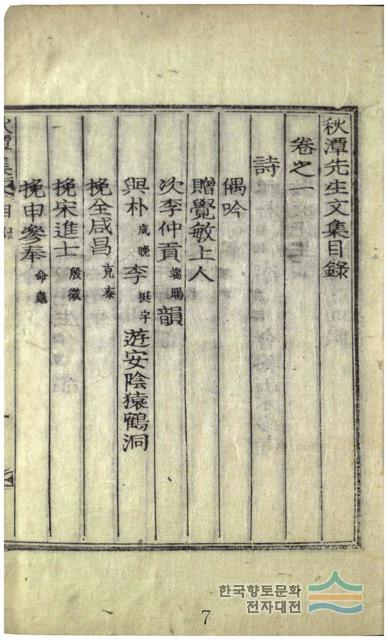 秋潭先生文集目錄
卷之一
詩
偶吟
贈覺敏上人
次李仲貢端賜韻
與朴成晚李挺宇遊安陰猿鶴洞
挽全咸昌克泰
挽宋進士殷徵
挽申參奉命鼎
한국향토문화
전자대전
7